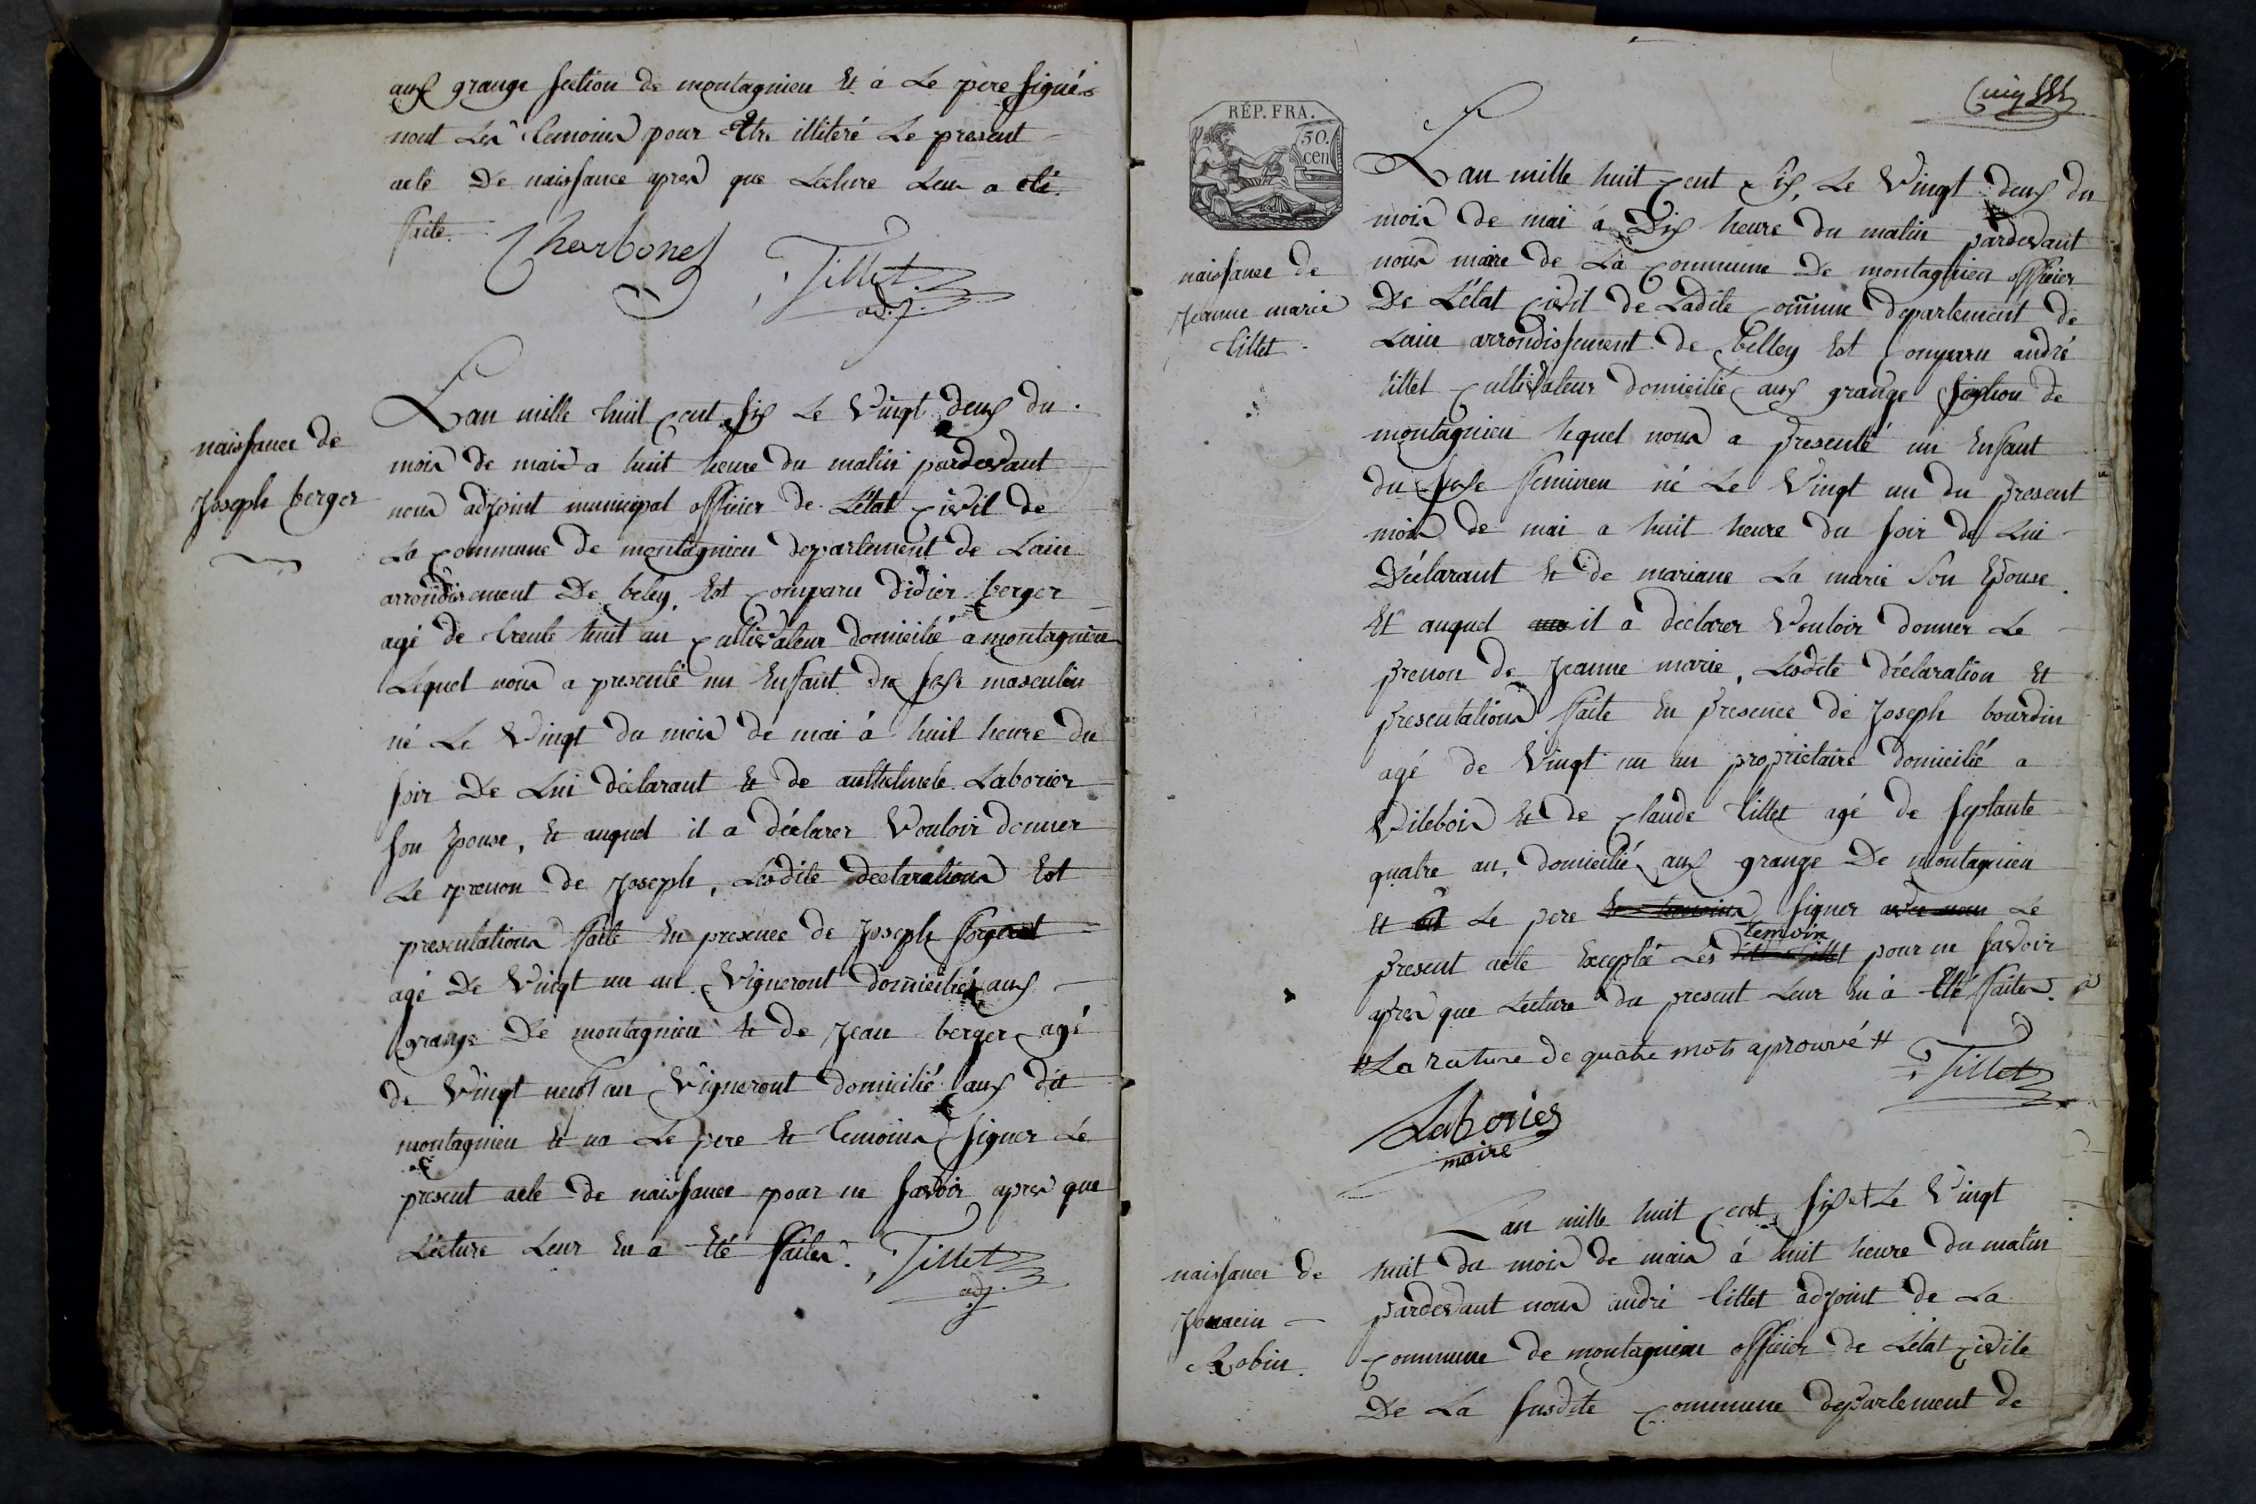 aux grange section de montagnieu et a Le père signé
nont Les temoins pour être illiteré Le present
acte De naissance apres que Lecture Leur a été
faite.
Charbonet
Tillet
adj.
naissance de
Joseph berger
Lan mille huit cent six Le Vingt deux du
mois de mais a huit heure du matin pardevant
nous adjoint municipal officier de L'état civil de
La commune de montagnieu departement de Lain
arrondisement De beley, Est comparu Didier berger
agé de trente huit an cultivateur domicilié a montagnieu
Lequel nous a presenté un Enfant du sexe masculin
né Le Vingt du mois de mai á huit heure du
soir De Lui déclarant Et de anthelmete Laborier
son Epouse, Et auquel il a déclarer Vouloir donner
Le prenon de Joseph, Lesdite declarations Est
presentations faite En presence de Joseph
agé De Vingt un an Vigneront domicilié aux
grange De montagnieu Et de Jean berger agé
de Vingt neuf an Vigneront domicilié aux dit
montagnieu Et na Le pere Et temoins signer Le
present acte de naissance pour ne savoir apres que
Lecture Leur En a Eté faites.
Tillet
adj.
RÉP. FRA.
50.
cen
Cinq
naissance de
Jeanne marie
tillet
Lan mille huit cent Six, Le Vingt deux du
mois de mai á Dix heure du matin pardevant
nous maire de La commune De montagnieu officier
De L'état civil de Ladite comune departement de
Lain arrondissement de Belley Est comparu andré
tillet cultivateur domicilié aux grange section de
montagnieu lequel nous a presenté un Enfant
du sexe feminen né Le Vingt un du present
mois de mai a huit heure du soir de Lui
Déclarant Et de mariane La marie son Epouse
Et auquel il a déclarer Vouloir donner Le
prenon de Jeanne marie, Lesdite déclaration Et
presentations faite En presence de Joseph bourdin
agé de Vingt un an proprietaire domicilié a
Vilebois Et de claude tillet agé de septante
quatre an, domicilié aux grange De montagnieu
Et Le pere signer Le
temoin
present acte Excepté Les pour ne savoir
apres que Lecture du present Leur En a Eté faites.
# La rature de quatre mots aprouvé #
Tillet
Laborier
maire
naissance de
Robin.
Lan mille huit cent six Le Vingt
huit du mois de mais á huit heure du matin
pardevant nous andré tillet adjoint de La
commune de montagnieu officier de L'état civile
De La susdite commune departement de